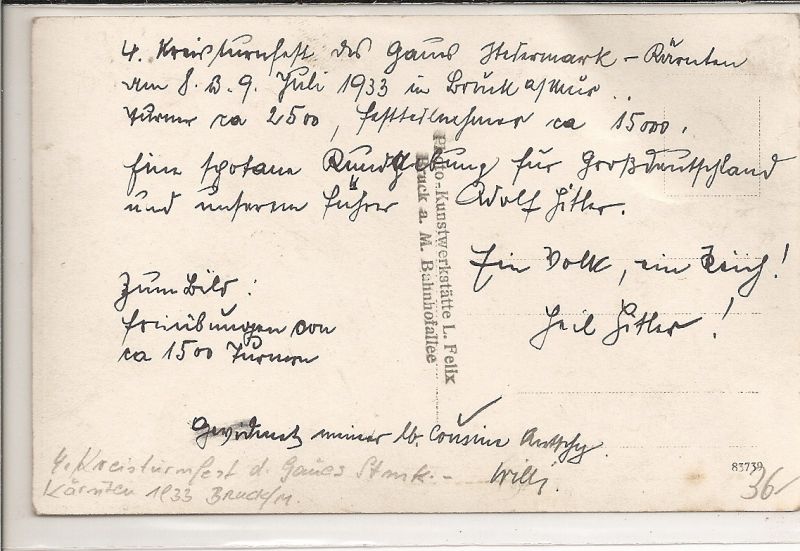 4. Kreisturnfest des Gaues Steiermark - Kärnten
am 8. u. 9. Juli 1933 in Bruck a/Mur.
Turner ca 2500, Festteilnehmer ca 15000.
Eine spotane Kundgebung für Großdeutschland
und unserem Führer Adolf Hitler.
Ein Volk, ein Reich!
Heil Hitler!
Zum Bild:
Freiübungen von
ca 1500 Turnern
Photo-Kunstwerkstätte L. Felix
Bruck a. M. Bahnhofallee
Gewidmet meiner lb. Cousine
Willi.
4. Kreisturnfest d. Gaues Stmk. -
Kärnten 1933 Bruck/M.
83739
36